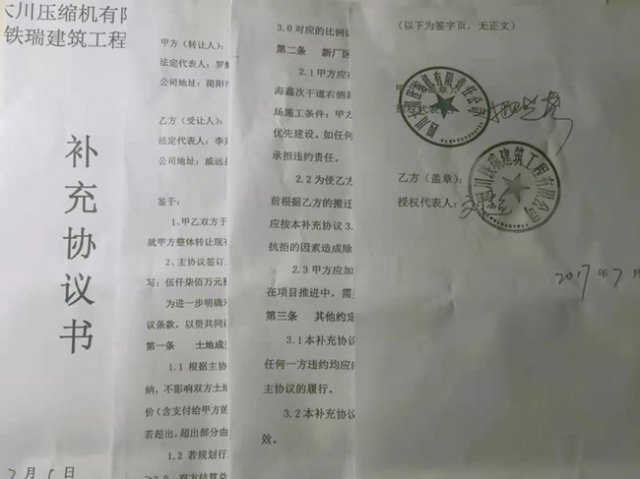 川压缩机有限
铁瑞建筑工程
补充协议书
月
甲方（转让人）：
法定代表人：罗
公司地址：简阳市
乙方（受让人）：
法定代表人：李
公司地址：威远县
鉴于：
1、甲乙双方于
就甲方整体转让现有
2、主协议签订
写：伍仟柒佰万元整
为进一步明确
议条款，以资共同
第一条　土地成
1.1 根据主协
纳，不影响双方土地
价（含支付给甲方的
若超出，超出部分由
1.2 若规划行
双方结算总
3.0 对应的比例
第二条　新厂区
2.1 甲方应
海鑫次干道右侧
场施工条件；甲方
优先建设。如任何
承担违约责任。
2.2 为使乙方
前根据乙方的搬迁
应按本补充协议 3.
抗拒的因素造成除
2.3 甲方应加
在项目推进中，需
第三条　其他约定
3.1 本补充协议
任何一方违约均应
主协议的履行。
3.2 本补充协议
效。
（以下为签字页，无正文）
授权代表人：
四川大川压缩机有限责任公司
乙方（盖章）：
授权代表人：
四川铁瑞建筑工程有限公司
2017 年 7 月